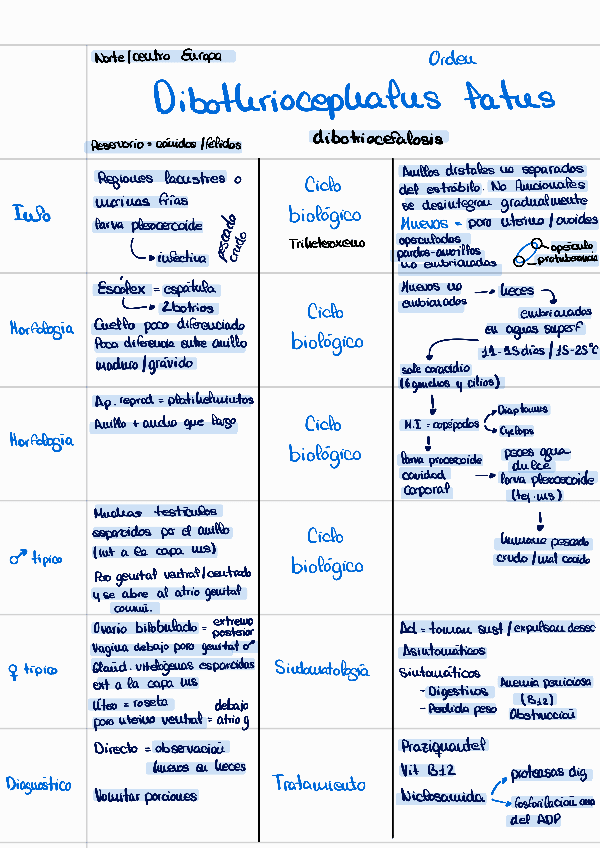 Norte/centro Europa
Orden
Dibothriocephalus latus
Reservorio = cánidos/félidos
dibotriocefalosis
Info
Regiones lacustres o
marinas frías
larva plerocercoide
infectiva
pescado
crudo
Ciclo
biológico
Triheteroxeno
Anillos distales no separados
del estróbilo. No funcionales
se desintegran gradualmente
Huevos = poro uterino/ovoides
operculados
pardos-amarillos
no embrionados
opérculo
protuberancia
Morfología
Escólex = espátula
2 botrios
Cuello poco diferenciado
Poca diferencia entre anillo
maduro/grávido
Ciclo
biológico
Huevos no
embrionados
heces
embrionados
en aguas superf
11-15 días/15-25°C
sale coracidio
(6 ganchos y cilios)
Morfología
Ap. reprod = platihelmintos
Anillo + ancho que largo
Ciclo
biológico
M.I = copépodos
Diaptomus
Cyclops
larva procercoide
cavidad
corporal
peces agua
dulce
larva plerocercoide
(tej. ms)
♂ típico
Muchos testículos
esparcidos por el anillo
(int a la capa ms)
Poro genital ventral/centrado
y se abre al atrio genital
común.
Ciclo
biológico
humano pescado
crudo/mal cocido
♀ típico
Ovario bilobulado = extremo
posterior
Vagina debajo poro genital ♂
Gland. vitelógenas esparcidas
ext a la capa ms
Útero = roseta
poro uterino ventral = debajo
atrio g
Sintomatología
Ad = toman sust/expulsan desec
Asintomáticos
Sintomáticos
- Digestivos
- Perdida peso
Anemia perniciosa
(B12)
Obstrucción
Diagnóstico
Directo = observación
huevos en heces
Vomitar porciones
Tratamiento
Praziquantel
Vit B12
Niclosamida
proteasas dig
fosforilación ana
del ADP